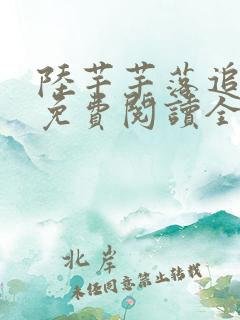 陸芊芊落追
免費閱讀全
北岸
未經同意禁止轉載